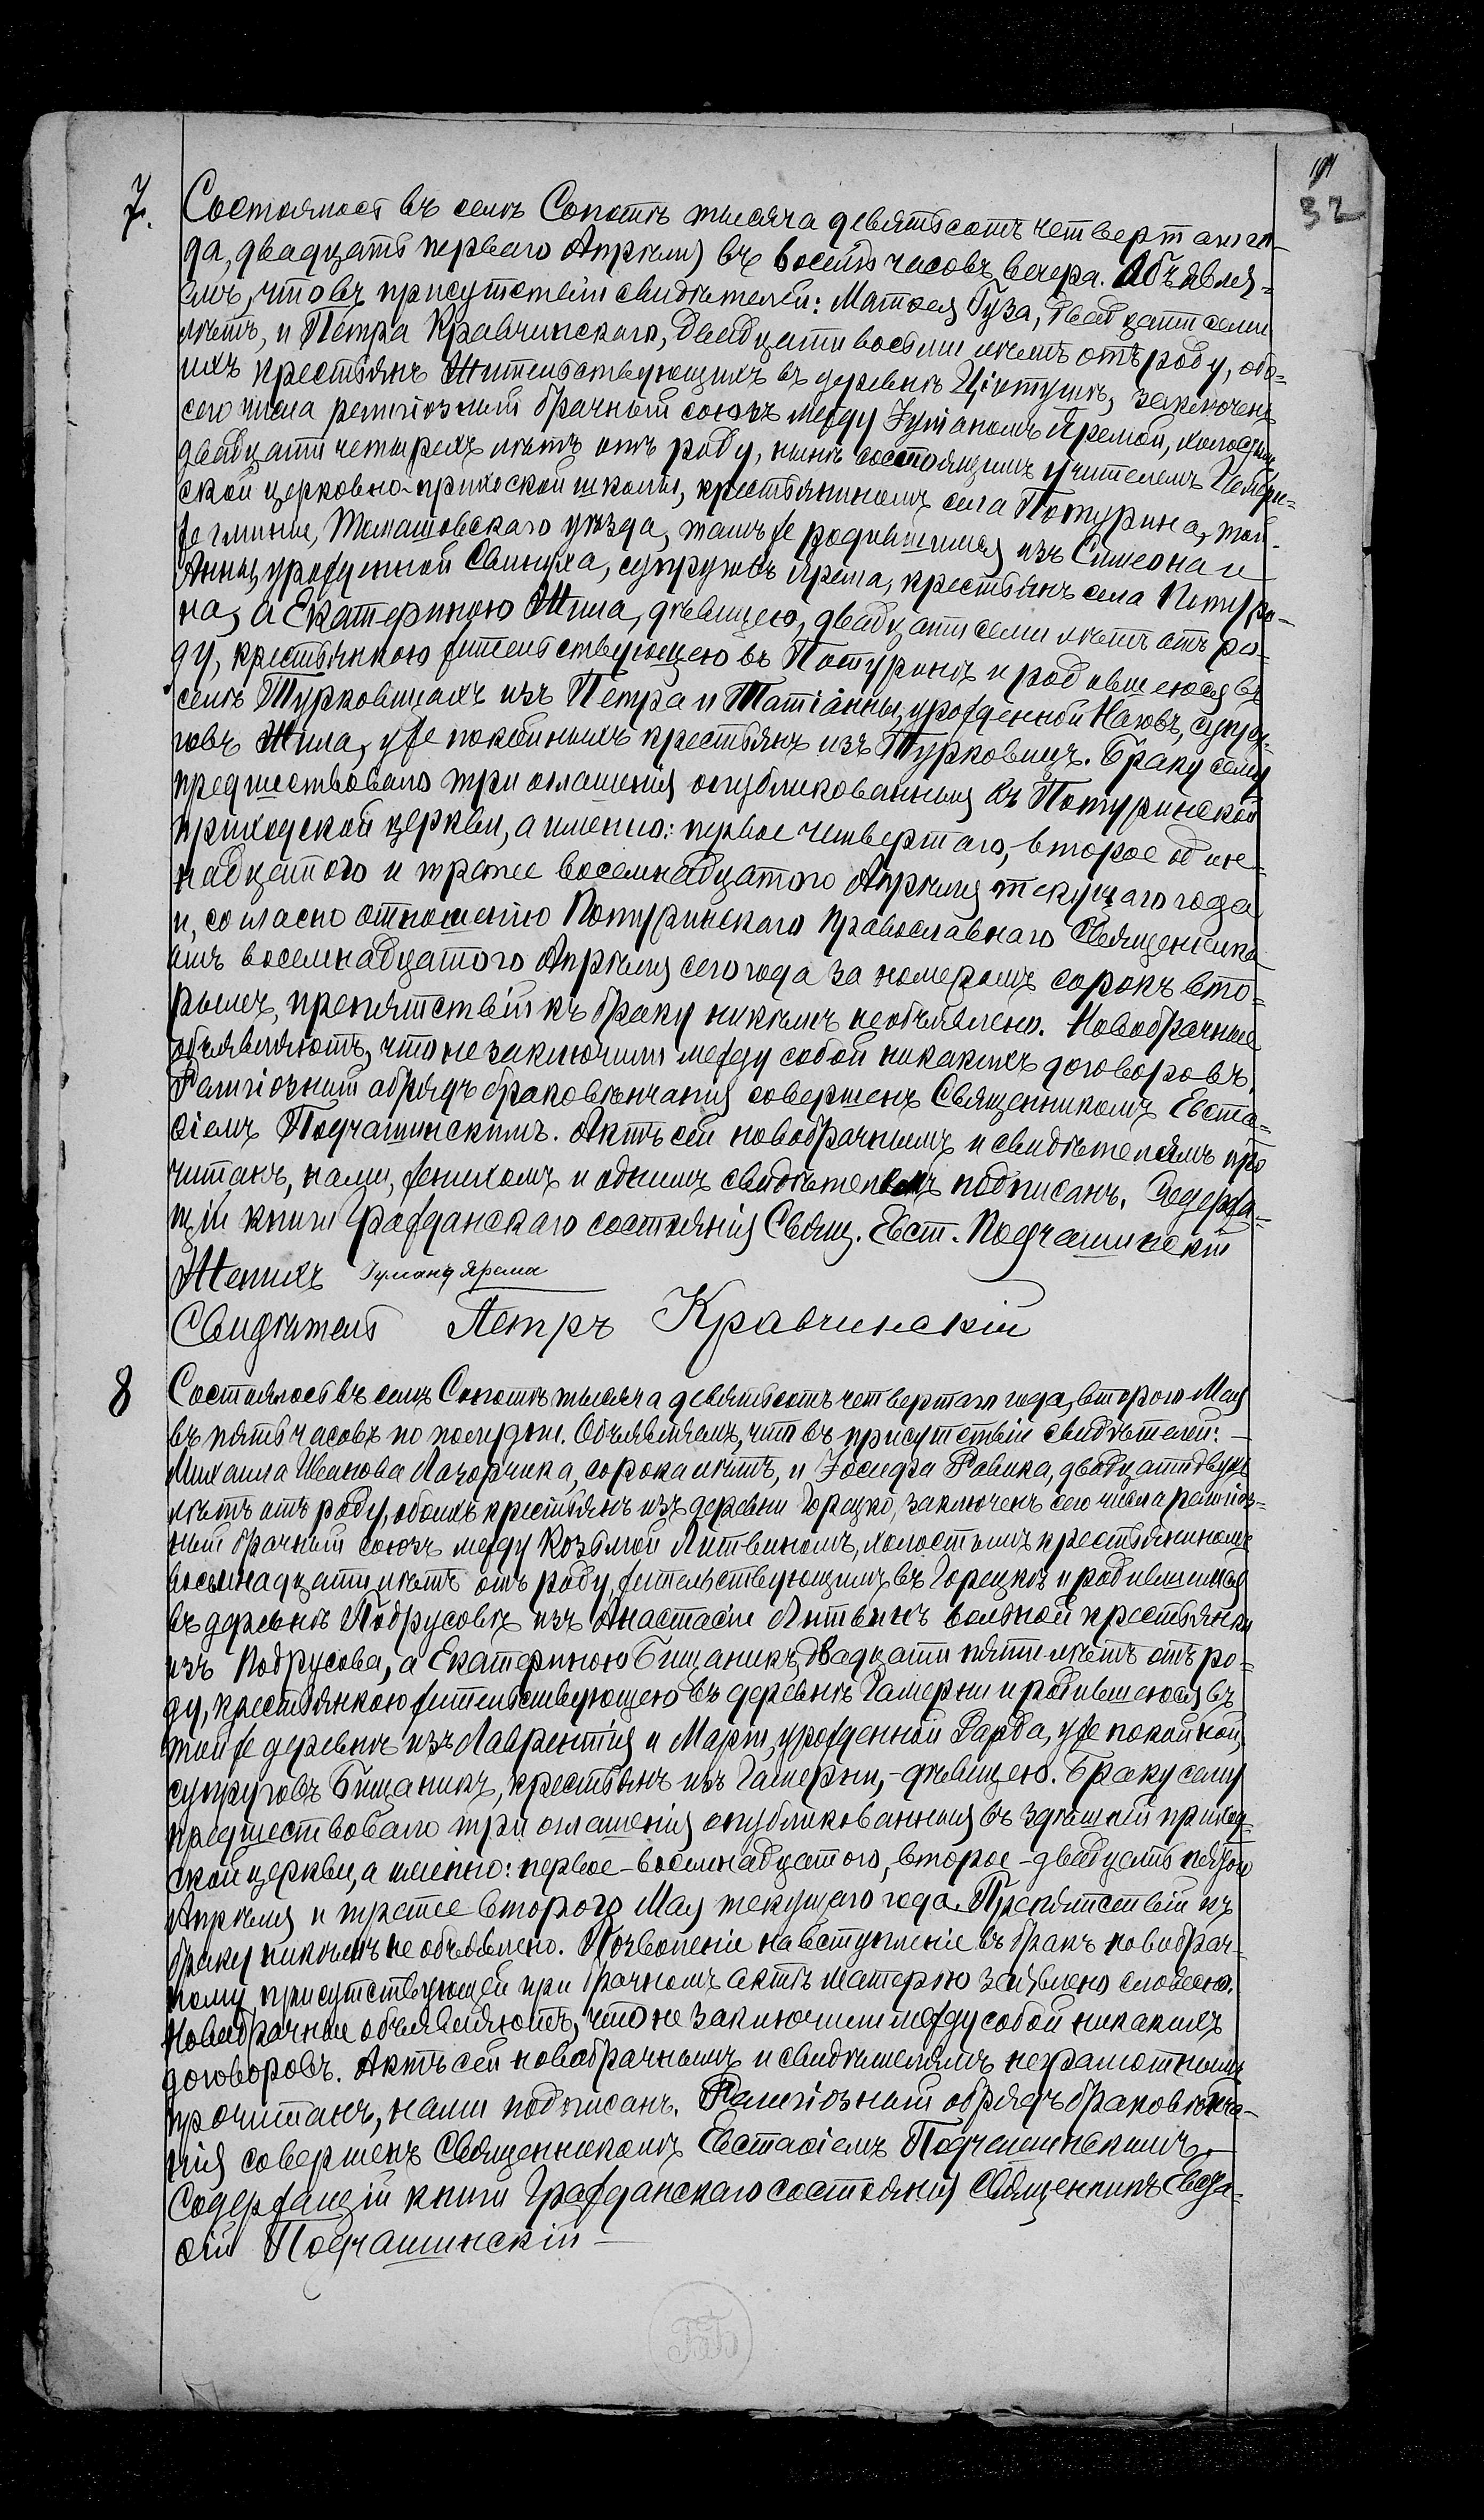 32
7. Состоялось въ селѣ Сопотѣ тысяча девятьсотъ четвертаго го-
да, двадцать перваго Апрѣля) въ восемь часовъ вечера. Объявля-
емъ, что въ присутствіи свидѣтелей: Матѳея Гуза, двадцати семи
лѣтъ, и Петра Кравчинскаго, двадцати восьми лѣтъ отъ роду, обо-
ихъ крестьянъ жительствующихъ въ деревнѣ Ціотушѣ, заключенъ
сего числа религіозный брачный союзъ между Іуліаномъ Яремой, холостымъ
двадцати четырехъ лѣтъ отъ роду, нынѣ состоящимъ учителемъ
ской церковно-приходской школы, крестьяниномъ села Потурина, той-
же гмины, Томашовскаго уѣзда, тамъ же родившимся изъ Симеона и
Анны, урожденной Свинуха, супруговъ Ярема, крестьянъ села Потури-
на, а Екатериною Жила, дѣвицею, двадцати семи лѣтъ отъ ро-
ду, крестьянкою жительствующею въ Потуринѣ и родившеюся въ
селѣ Турковицахъ изъ Петра и Татіанны, урожденной супру-
говъ Жила, уже покойныхъ крестьянъ изъ Турковицъ. Браку сему
предшествовало три оглашенія опубликованныя въ Потуринской
приходской церкви, а именно: первое четвертаго, второе один-
надцатого и третее восемнадцатого Апрѣля текущаго года
и, согласно отношенію Потуринскаго Православнаго Священника
отъ восемнадцатого Апрѣля сего года за номеромъ сорокъ вто-
рымъ, препятствій къ браку никѣмъ не объявлено. Новобрачные
объявляютъ, что не заключили между собой никакихъ договоровъ.
Религіозный обрядъ браковѣнчанія совершенъ Священникомъ Евста-
ѳіемъ Подчашинскимъ. Актъ сей новобрачнымъ и свидѣтелямъ про
читанъ, нами, женихомъ и однимъ свидѣтелемъ подписанъ. Содержа-
щій книги Гражданскаго состоянія Свящ. Евст. Подчашинскій
Женихъ Іуліанъ Ярема
Свидѣтель Петръ Кравчинскій
8 Состоялось въ селѣ Сопотѣ тысяча девятьсотъ четвертаго года, второго Мая
въ пять часовъ по полудни. Объявляемъ, что въ присутствіи свидѣтелей: —
Михаила Иванова Лагорчика, сорока лѣтъ, и Іосифа Равика, двадцати двухъ
лѣтъ отъ роду, обоихъ крестьянъ изъ деревни Горецко, заключенъ сего числа религіоз-
ный брачный союзъ между Козьмой Литвиномъ, холостымъ крестьяниномъ
восьмнадцати лѣтъ отъ роду, жительствующимъ въ Горецкѣ и родившимся
въ деревнѣ Подрусовѣ изъ Анастасіи Литвинъ вольной крестьянки
изъ Подрусова, а Екатериною Бищаникъ, двадцати пяти лѣтъ отъ ро-
ду, крестьянкою жительствующею въ деревнѣ Гамерни и родившеюся въ
той же деревнѣ изъ Лаврентія и Маріи, урожденной Варда, уже покойной,
супруговъ Бищаникъ, крестьянъ изъ Гамерни, - дѣвицею. Браку сему
предшествовало три оглашенія опубликованныя въ здѣшней приход-
ской церкви, а именно: первое - восемнадцатого, второе - двадцать пятого
Апрѣля и третее второго Мая текущаго года. Препятствій къ
браку никѣмъ не объявлено. Позволеніе на вступленіе въ бракъ новобрач-
ному, присутствующей при брачномъ актѣ матерью заявлено словесно.
Новобрачные объявляютъ, что не заключили между собой никакихъ
договоровъ. Актъ сей новобрачнымъ и свидѣтелямъ неграмотнымъ
прочитанъ, нами подписанъ. Религіозный обрядъ браковѣнча-
нія совершенъ Священникомъ Евстаѳіемъ Подчашинскимъ. —
Содержащій книги Гражданскаго состоянія Священникъ Евста-
ѳій Подчашинскій —